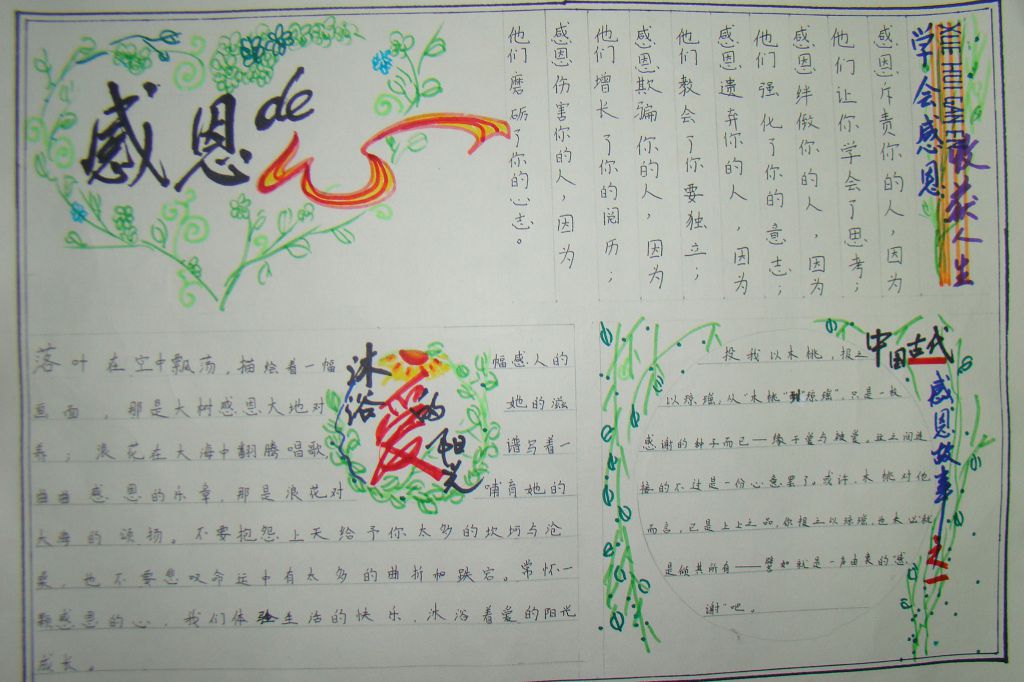 感恩de心
学会感恩
收获人生
XUE HUI GAN EN
感恩斥责你的人,因为
他们让你学会了思考;
感恩绊倒你的人,因为
他们强化了你的意志;
感恩遗弃你的人,因为
他们教会了你要独立;
感恩欺骗你的人,因为
他们增长了你的阅历;
感恩伤害你的人,因为
他们磨砺了你的心志。
沐浴爱的阳光
落叶在空中飘荡,描绘着一幅幅感人的
画面,那是大树感恩大地对她的滋
养;浪花在大海中翻腾唱歌,谱写着一
曲曲感恩的乐章,那是浪花对哺育她的
大海的颂扬。不要抱怨上天给予你太多的坎坷与沧
桑,也不要悲叹命运中有太多的曲折和跌宕。常怀一
颗感恩的心,我们体验生活的快乐,沐浴着爱的阳光
成长。
中国古代
感恩故事之一
投我以木桃,报之
以琼瑶,从“木桃”到“琼瑶”,只是一枚
感谢的种子而已——缘于爱与被爱。丘之间连
接的不过是一份心意罢了。或许,木桃对他
而言,已是上上之品,你报之以琼瑶,也未必就
是倾其所有——譬如就是一声由衷的“感
谢”吧。